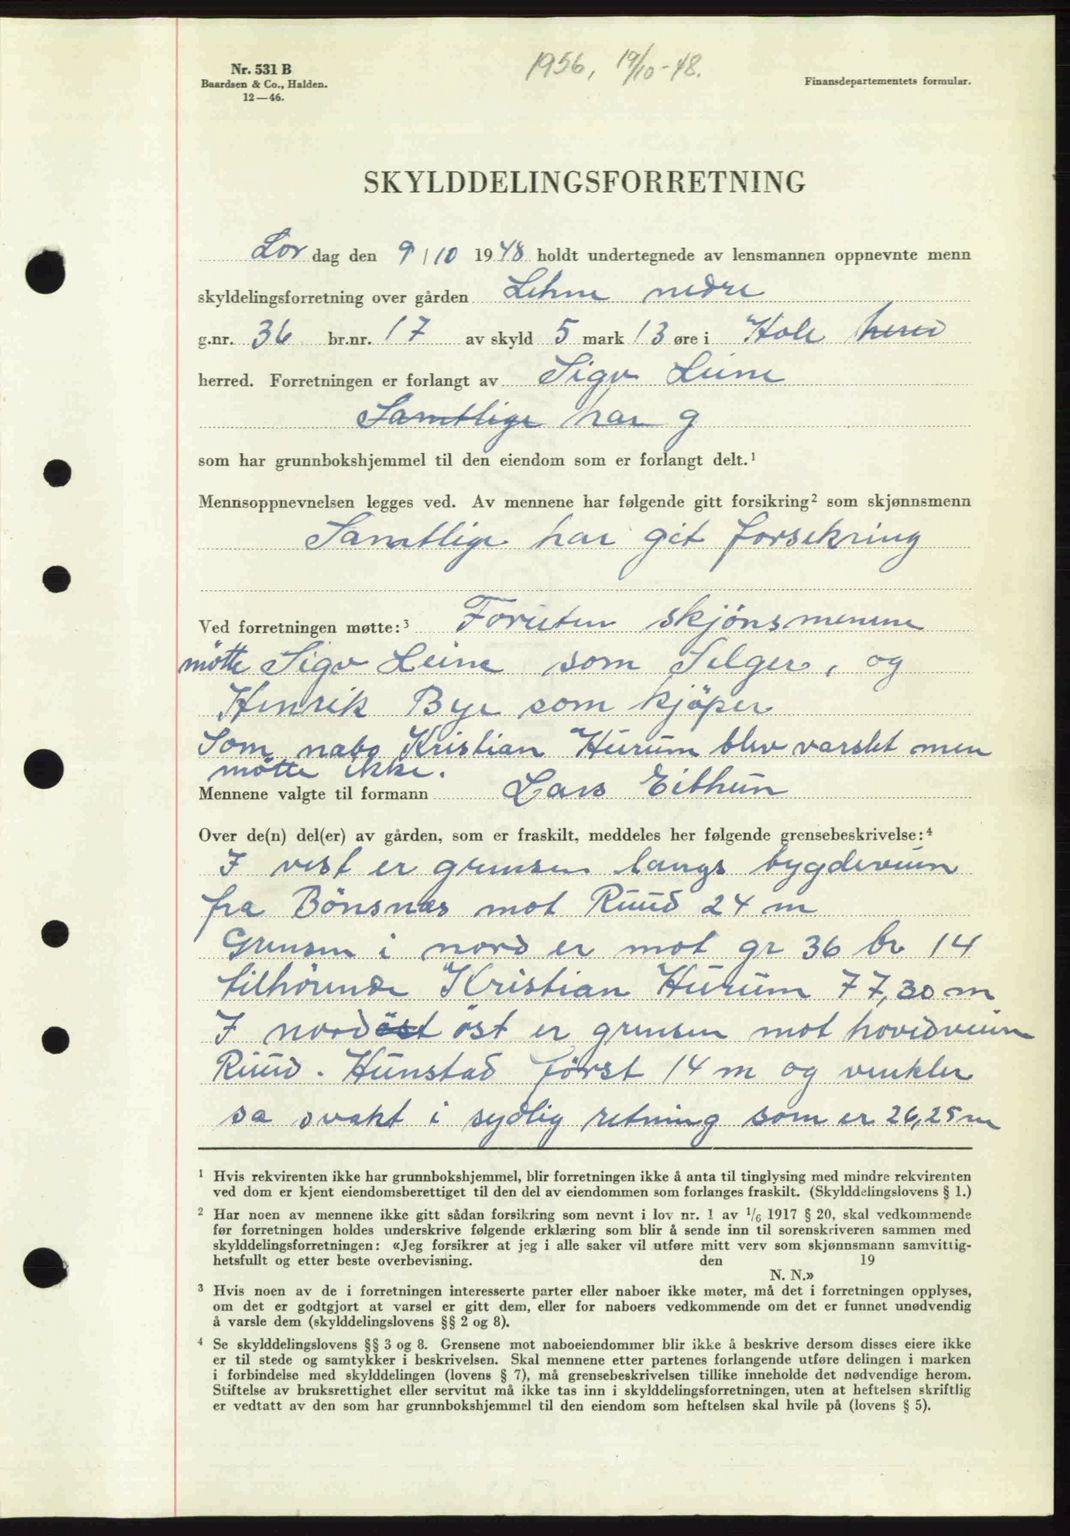 1956, 19/10-48.
Nr. 531 B
Baardsen & Co., Halden.
12—46.
Finansdepartementets formular.
SKYLDDELINGSFORRETNING
Lör dag den 9/10 1948 holdt undertegnede av lensmannen oppnevnte menn
skyldelingsforretning over gården Lehne nedre
g.nr. 36 br.nr. 17 av skyld 5 mark 13 øre i Hole herred
herred. Forretningen er forlangt av Sigv Leine
Samtlige har g
som har grunnbokshjemmel til den eiendom som er forlangt delt.¹
Mennsoppnevnelsen legges ved. Av mennene har følgende gitt forsikring² som skjønnsmenn
Samtlige har git forsekring
Ved forretningen møtte:³ Foruten skjönsmenene
mötte Sigv Leine som Selger, og
Henrik Bye som kjöper
Som nabo Kristian Hurum blev varslet men
mötte ikke.
Mennene valgte til formann Lars Eithun
Over de(n) del(er) av gården, som er fraskilt, meddeles her følgende grensebeskrivelse:⁴
I vest er grensen langs bygdeveien
fra Bönsnæs mot Ruud 24 m
Grensen i nord er mot gr 36 br 14
tilhörende Kristian Hurum 77,30 m
I nordöst öst er grensen mot hovedveien
Ruud - Hunstad först 14 m og vinkler
sa svakt i sydlig retning som er 26,25 m
¹ Hvis rekvirenten ikke har grunnbokshjemmel, blir forretningen ikke å anta til tinglysing med mindre rekvirenten
ved dom er kjent eiendomsberettiget til den del av eiendommen som forlanges fraskilt. (Skylddelingslovens § 1.)
² Har noen av mennene ikke gitt sådan forsikring som nevnt i lov nr. 1 av 1/6 1917 § 20, skal vedkommende
før forretningen holdes underskrive følgende erklæring som blir å sende inn til sorenskriveren sammen med
skylddelingsforretningen: «Jeg forsikrer at jeg i alle saker vil utføre mitt verv som skjønnsmann samvittig-
hetsfullt og etter beste overbevisning. den 19
N. N.»
³ Hvis noen av de i forretningen interesserte parter eller naboer ikke møter, må det i forretningen opplyses,
om det er godtgjort at varsel er gitt dem, eller for naboers vedkommende om det er funnet unødvendig
å varsle dem (skylddelingslovens §§ 2 og 8).
⁴ Se skylddelingslovens §§ 3 og 8. Grensene mot naboeiendommer blir ikke å beskrive dersom disses eiere ikke
er til stede og samtykker i beskrivelsen. Skal mennene etter partenes forlangende utføre delingen i marken
i forbindelse med skylddelingen (lovens § 7), må grensebeskrivelsen tillike inneholde det nødvendige herom.
Stiftelse av bruksrettighet eller servitut må ikke tas inn i skylddelingsforretningen, uten at heftelsen skriftlig
er vedtatt av den som har grunnbokshjemmel til den eiendom som heftelsen skal hvile på (lovens § 5).